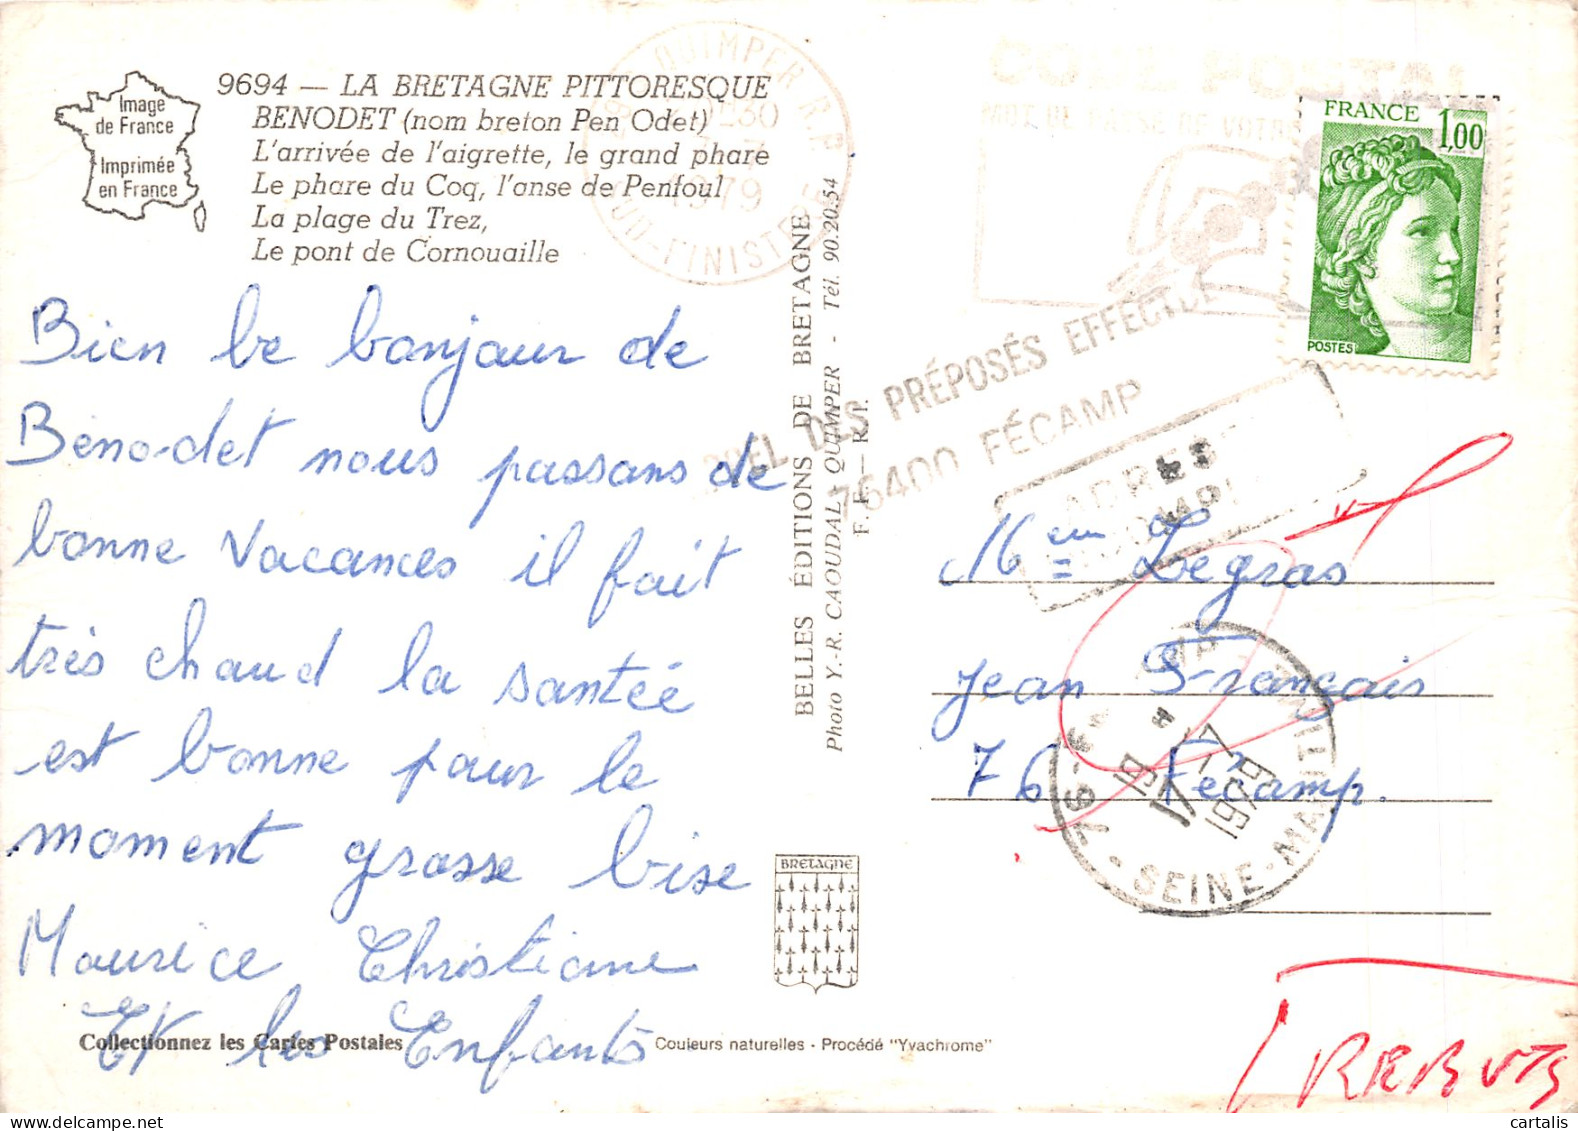 Image
de France
Imprimée
en France
9694 — LA BRETAGNE PITTORESQUE
BENODET (nom breton Pen Odet)
L'arrivée de l'aigrette, le grand phare
Le phare du Coq, l'anse de Penfoul
La plage du Trez,
Le pont de Cornouaille
QUIMPER R.P.
1979
SUD-FINISTERE
CODE POSTAL
MOT DE PASSE DE VOTRE
FRANCE 1,00
POSTES
Bien le bonjour de
Benodet nous passons de
bonne vacances il fait
très chaud la santée
est bonne pour le
moment grosse bise
Maurice Christiane
Et les Enfants
BELLES ÉDITIONS DE BRETAGNE
Photo Y.-R. CAOUDAL - QUIMPER - Tél. 90.20.54
F. F. — R. P.
APPEL DES PRÉPOSÉS EFFECTUÉ
76400 FÉCAMP
ADRESSE
Mem Legras
Jean Français
76 Fécamp.
76-FÉCAMP
19 H
17-7
1979
SEINE-MARITIME
BRETAGNE
Collectionnez les Cartes Postales
Couleurs naturelles - Procédé "Yvachrome"
REBUTS
cartalis.com